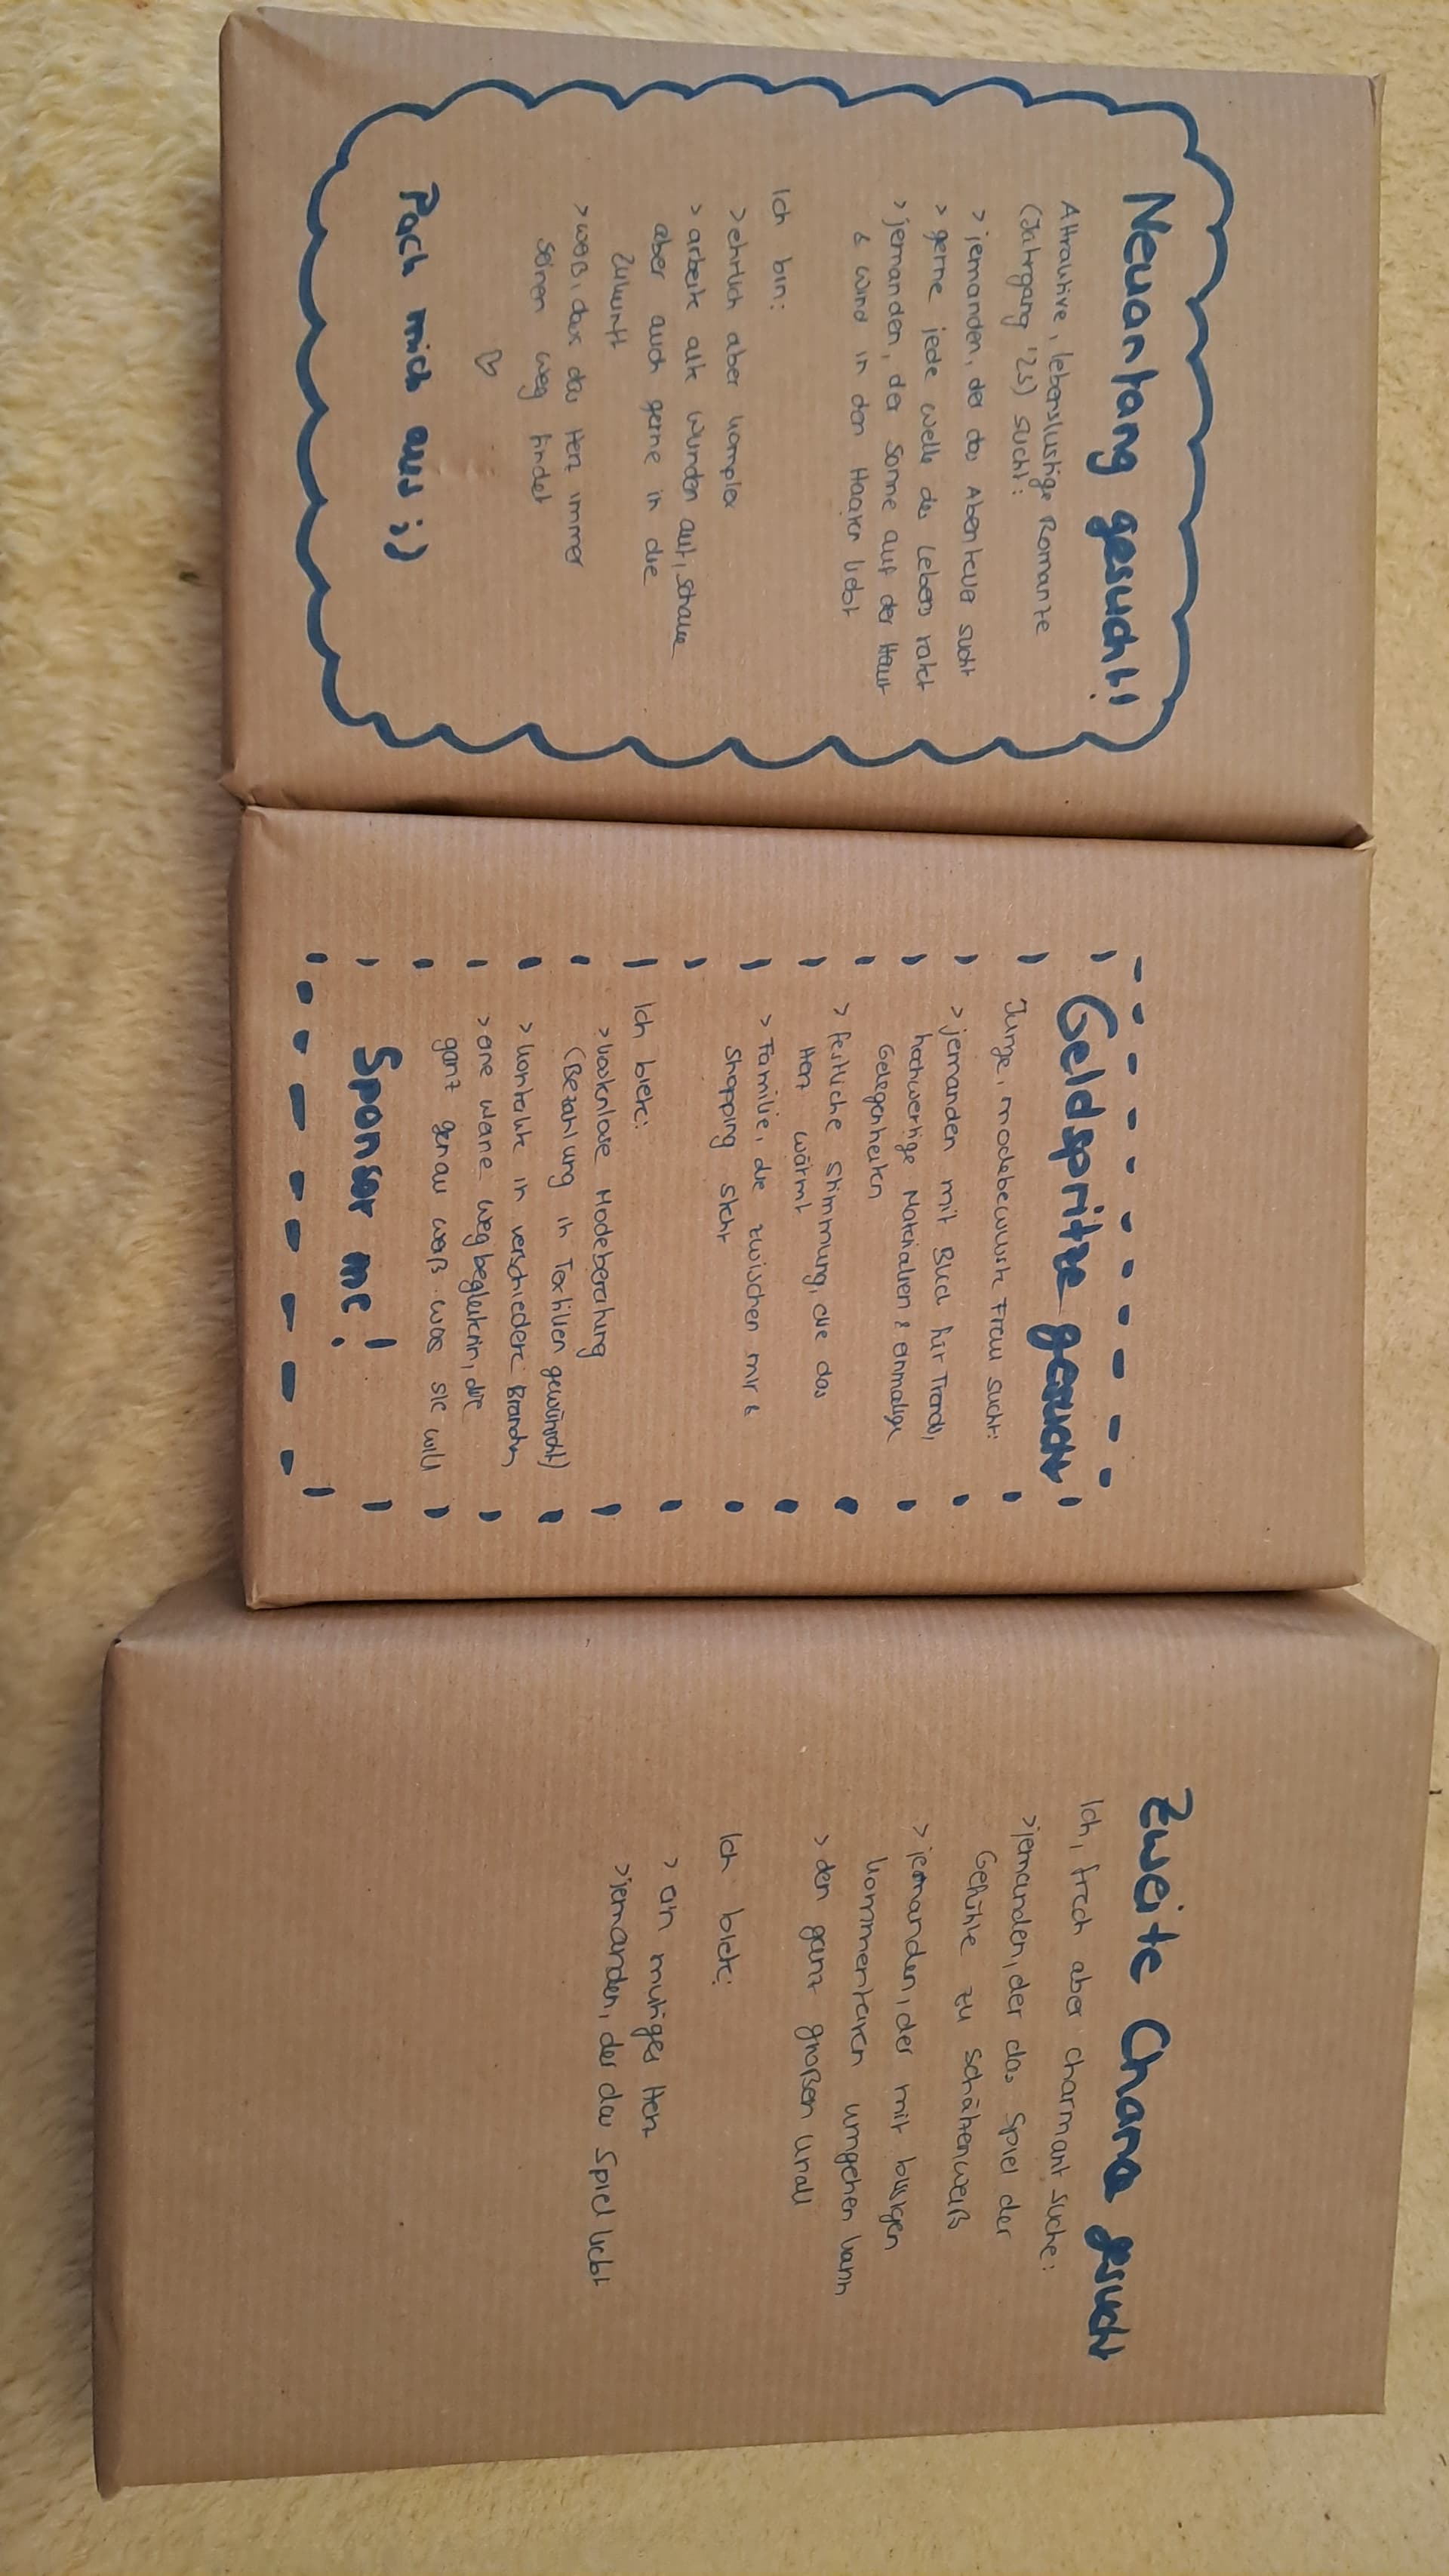 Neuanfang gesucht!
Attraktive, lebenslustige Romanze
(Jahrgang '23) sucht:
> jemanden, der das Abenteuer sucht
> gerne jede Welle des Lebens reitet
> jemanden, der Sonne auf der Haut
& Wind in den Haaren liebt
Ich bin:
> ehrlich aber komplex
> arbeite alte Wunden auf, schaue
aber auch gerne in die
Zukunft
> weiß, dass das Herz immer
seinen Weg findet
Pack mich aus ;)
Geldspritze gesucht
Junge, modebewusste Frau sucht:
> jemanden mit Blick für Trends,
hochwertige Materialien & einmalige
Gelegenheiten
> festliche Stimmung, die das
Herz wärmt
> Familie, die zwischen mir &
Shopping steht
Ich biete:
> kostenlose Modeberatung
(Bezahlung in Textilien gewünscht)
> Kontakte in verschiedene Branchen
> eine Wegbegleiterin, die
ganz genau weiß was sie will
Sponsor me!
Zweite Chance gesucht
Ich, frech aber charmant suche:
> jemanden, der das Spiel der
Gefühle zu schätzen weiß
> jemanden, der mit bissigen
Kommentaren umgehen kann
> den ganz großen Knall
Ich biete:
> ein mutiges Herz
> jemanden, der das Spiel liebt